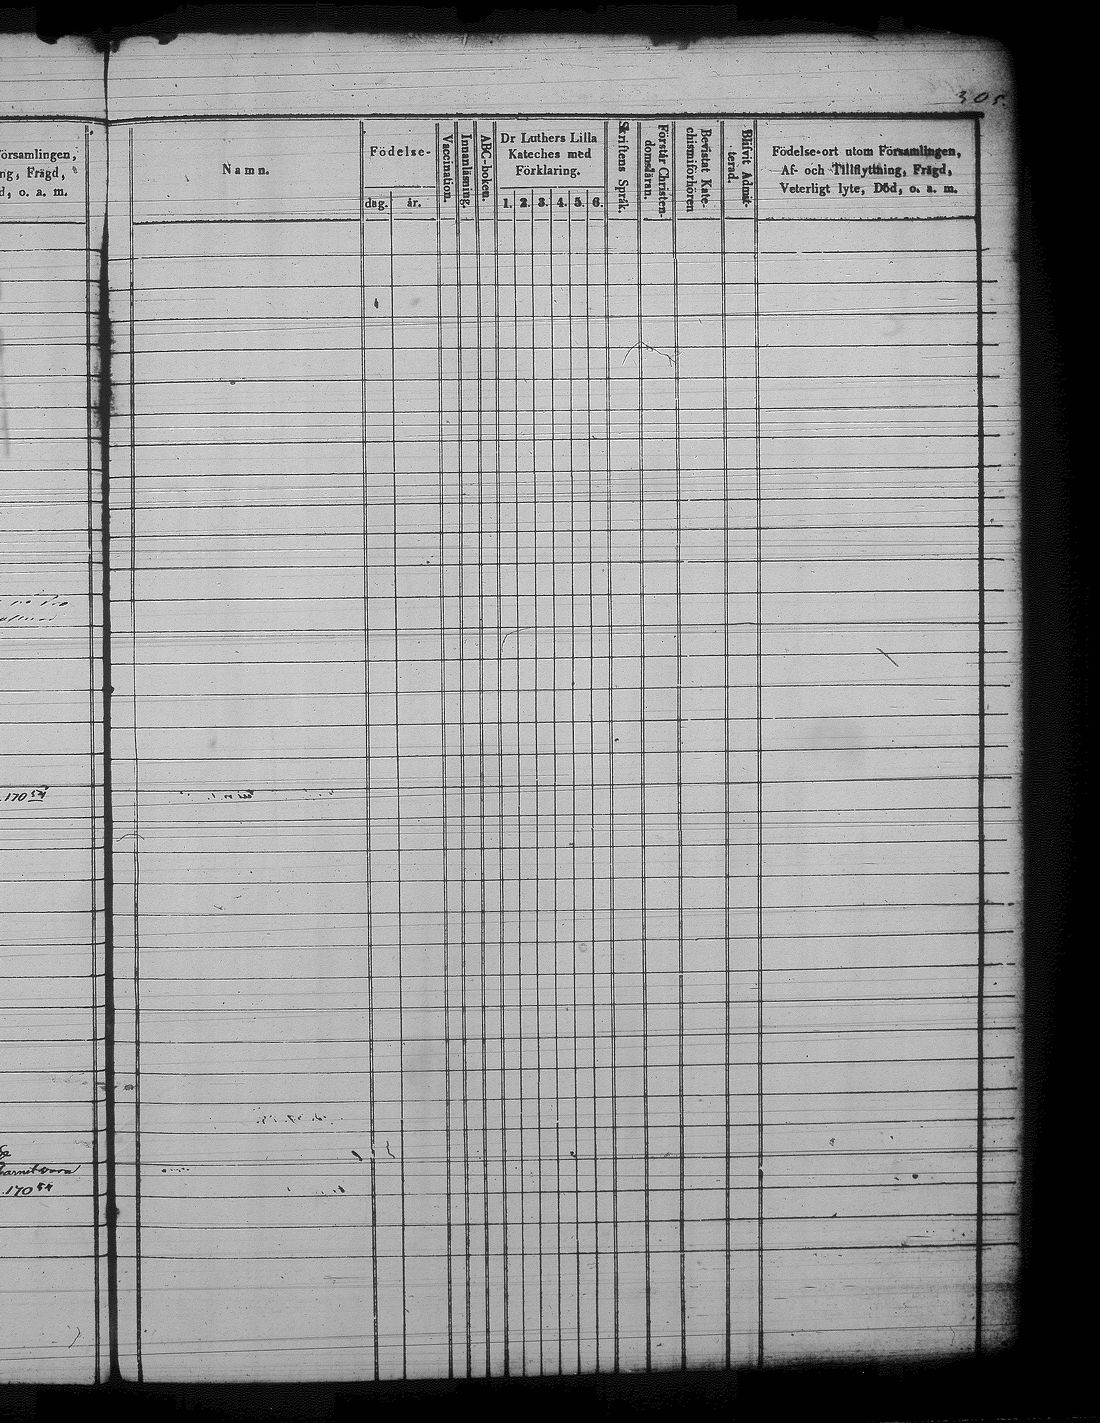 305.
örsamlingen,
ng, Frägd,
d, o. a. m.
170
170
Namn.
Födelse-
dag.
år.
Vaccination.
Innanläsning.
ABC-boken.
Dr Luthers Lilla
Kateches med
Förklaring.
1. 2. 3. 4. 5. 6.
Skriftens Språk.
Förstår Christen-
domsläran.
Bevistat Kate-
chismiförhören
Blifvit Admit-
terad.
Födelse-ort utom Församlingen,
Af- och Tillflyttning, Frägd,
Veterligt lyte, Död, o. a. m.